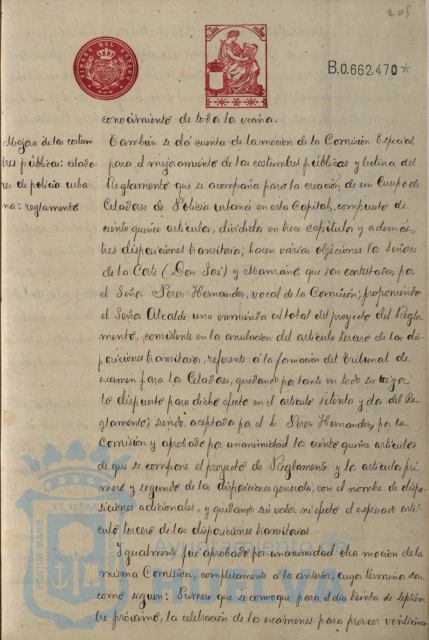 205
TIMBRE DEL ESTADO
B.0.662.470*
conocimiento de toda la ocaña.
Mejora de las costum
bres públicas: celado
res de policía urba
na: reglamento
También se dá cuenta de la mocion de la Comisión Especial
para el mejoramiento de las costumbres públicas y lectura del
Reglamento que se acompaña para la creación de un Cuerpo de
Celadores de Policía urbana en esta Capital, compuesto de
ciento quince articulos, divididos en trece capítulos y además
tres disposiciones transitorias; hacen várias objeciones los Señores
de la Corte (Don José) y Manzano, que son contestadas por
el Señor Peres Hernandez, vocal de la Comisión; proponiendo
el Señor Alcalde una enmienda al total del proyecto del Regla
mento, consistente en la anulacion del articulo tercero de las dis
posiciones transitorias, referente á la formacion del Tribunal de
examen para los Celadores, quedando por tanto en todo su vigor
lo dispuesto para dicho efecto en el articulo setenta y dos del Re
glamento; siendo aceptada por el Sr. Peres Hernandez, por la
Comisión y aprobado por unanimidad los ciento quince articulos
de que se compone el proyecto de Reglamento y los articulos pri
mero y segundo de las disposiciones generales, con el nombre de dispo
siciones adicionales, y quedando sin valor ni efecto el expresado arti
culo tercero de las disposiciones transitorias
Igualmente fué aprobado por unanimidad otra mocion de la
misma Comisión, completamente á la anterior, cuyos términos son
como siguen: Primero que se convoque para el día treinta de septiem
bre próximo, la celebración de los exámenes para proveer veinticinco